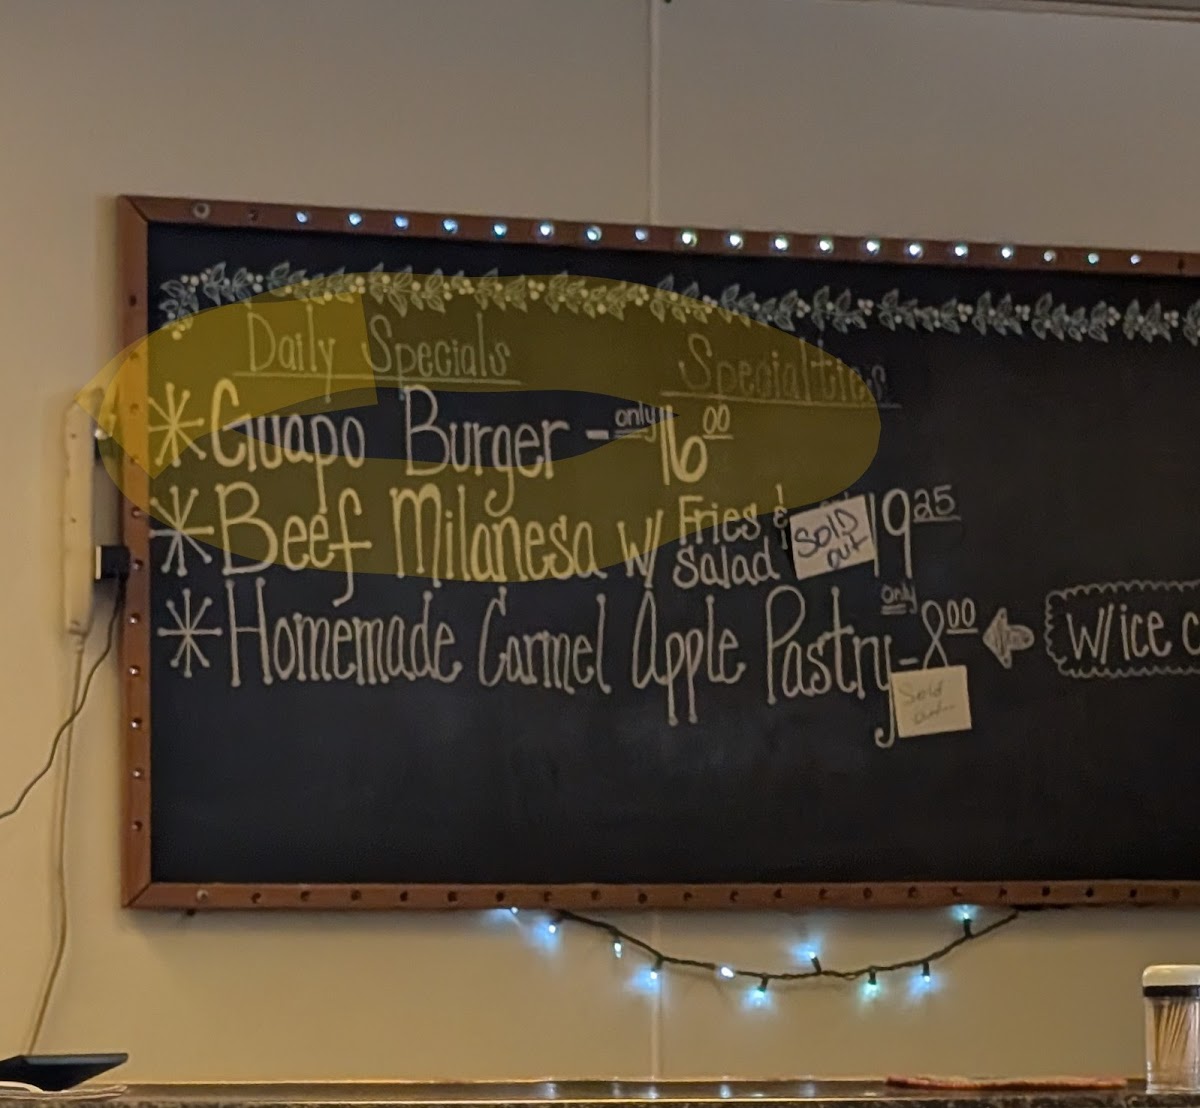 Daily Specials Specialties
* Guapo Burger - only 16.00
* Beef Milanesa w/ Fries & Salad Sold out 19.25
* Homemade Carmel Apple Pastry - only 8.00 w/ice c
Sold out